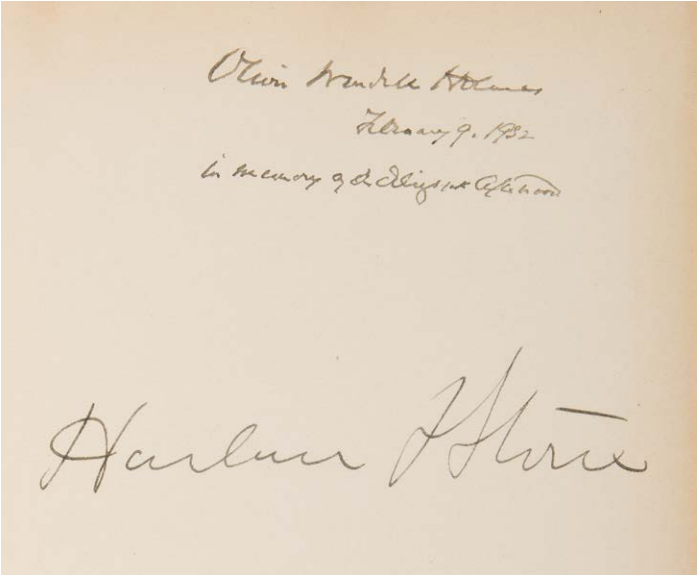 Oliver Wendell Holmes
February 9. 1932
in memory of a delightful afternoon
Harlan F Stone